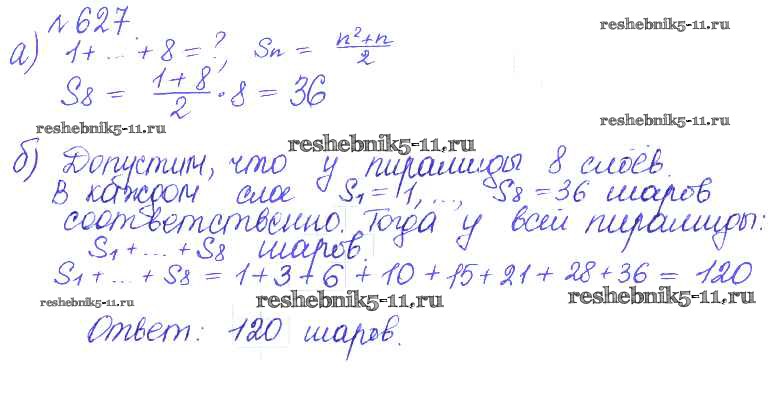 №627.
reshebnik5-11.ru
а) 1+...+8=?, Sn = n²+n/2
S8 = 1+8/2 · 8 = 36
reshebnik5-11.ru
reshebnik5-11.ru
reshebnik5-11.ru
б) Допустим, что у пирамиды 8 слоёв.
В каждом слое S1=1,..., S8=36 шаров
соответственно. Тогда у всей пирамиды:
S1+...+S8 шаров.
S1+...+S8 = 1+3+6+10+15+21+28+36 = 120
reshebnik5-11.ru
reshebnik5-11.ru
reshebnik5-11.ru
Ответ: 120 шаров.